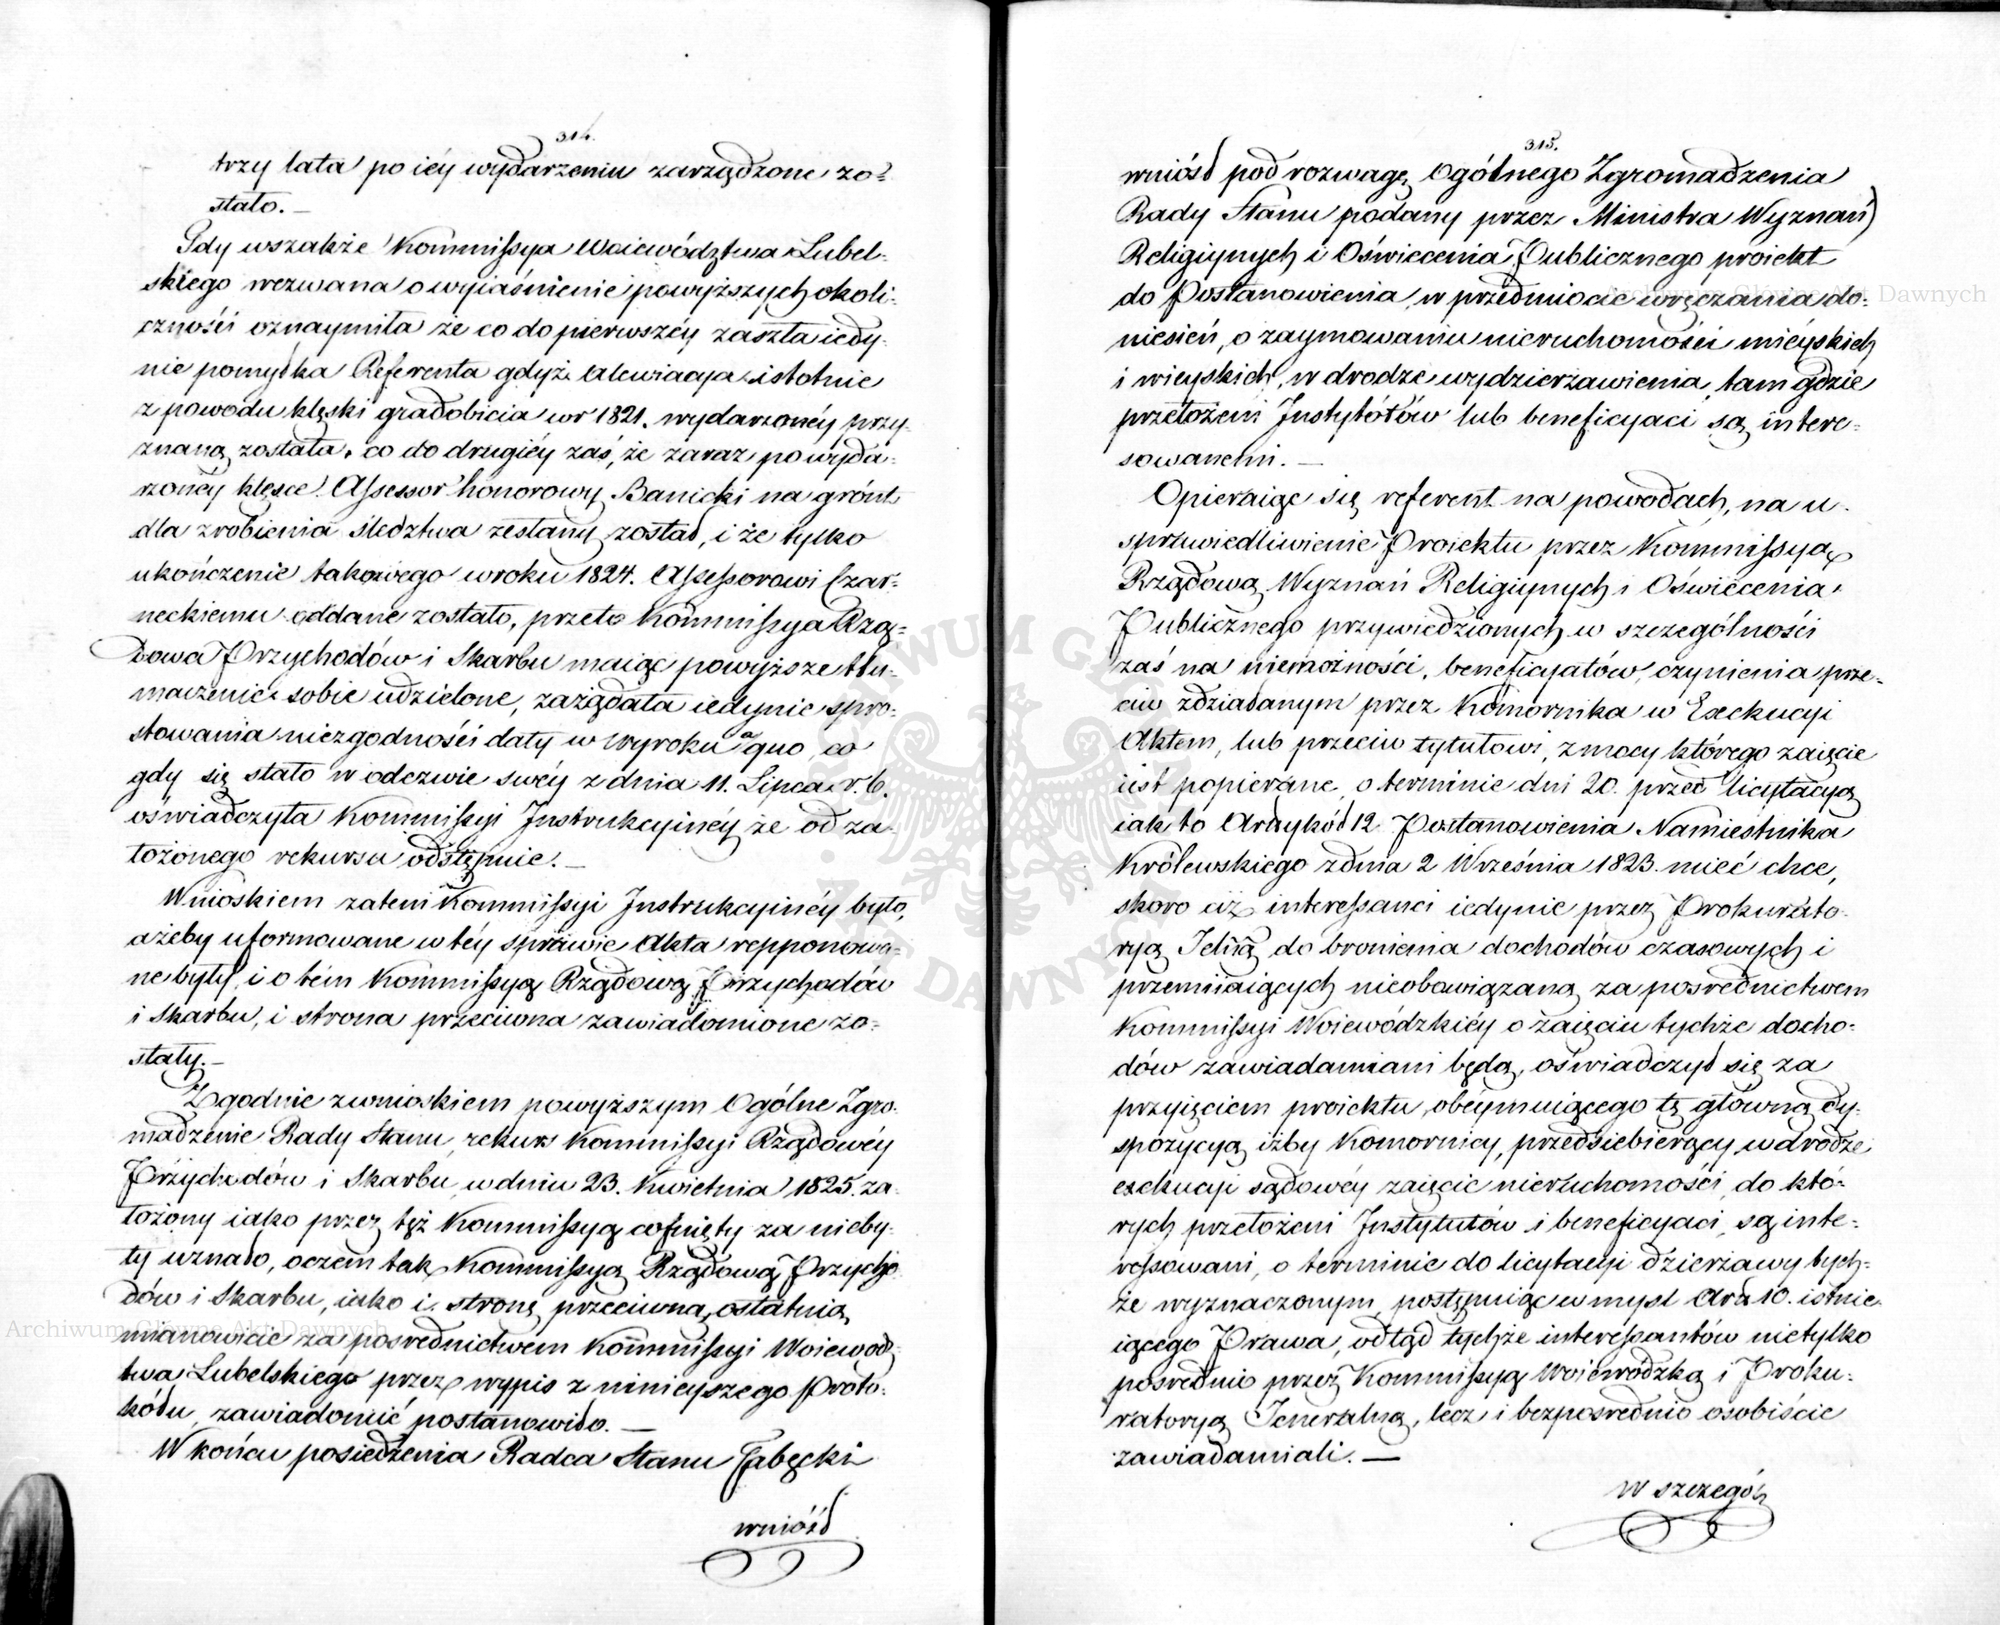 314.
trzy lata po iéy wydarzeniu zarządzone zo=
stało. —
Gdy wszakże Kommissya Woiewództwa Lubel=
skiego wezwana o wyiaśnienie powyższych okoli=
czności oznaymiła że co do pierwszéy zaszła iedy=
nie pomyłka Referenta gdyż alewiacya istotnie
z powodu klęski gradobicia w r 1821. wydarzonéy przy=
znaną została, co do drugiéy zaś, że zaraz po wyda=
rzonéy klęsce Assessor honorowy Banicki na grónt
dla zrobienia śledztwa zesłany został, i że tylko
ukończenie takowego w roku 1824. Assessorowi Czar=
neckiemu oddane zostało, przeto Kommissya Rzą=
dowa Przychodów i Skarbu maiąc powyższe tłu=
maczenie sobie udzielone, zażądała iedynie spro=
stowania niezgodności daty w wyroku a quo, co
gdy się stało w odezwie swéy z dnia 11. Lipca r. b.
oświadczyła Kommissyi Instrukcyinéy że od za=
łożonego rekursu odstępuie. —
Wnioskiem zatem Kommissyi Instrukcyinéy było,
ażeby uformowane w téy sprawie Akta repponowa=
ne były, i o tém Kommissyą Rządową Przychodów
i Skarbu, i strona przeciwna zawiadomione zo=
stały. —
Zgodnie z wnioskiem powyższym Ogólne Zgro=
madzenie Rady Stanu, rekurs Kommissyi Rządowéy
Przychodów i Skarbu w dniu 23. Kwietnia 1825. za=
łożony iako przez tęż Kommissyą cofnięty za nieby=
ły uznało, o czem tak Kommissyą Rządową Przycho
dów i Skarbu, iako i stronę przeciwną, ostatnią
mianowicie za pośrednictwem Kommissyi Woiewódz=
twa Lubelskiego przez wypis z ninieyszego Proto=
kółu, zawiadomić postanowiło. —
W końcu posiedzenia Radca Stanu Łabęcki
wniósł
315.
wniósł pod rozwagę Ogólnego Zgromadzenia
Rady Stanu podany przez Ministra Wyznań
Religiynych i Oświecenia Publicznego proiekt
do Postanowienia, w przedmiocie wręczania do=
niesień, o zaymowaniu nieruchomości mieyskich
i wieyskich, w drodze wydzierżawienia, tam gdzie
przełożeni Instytótów lub beneficyaci są intere=
sowanemi. —
Opieraiąc się referent na powodach, na u=
sprawiedliwienie Proiektu przez Kommissyą
Rządową Wyznań Religiynych i Oświecenia
Publicznego przywiedzionych w szczególności
zaś na niemożności, beneficyatów, czynienia prze=
ciw zdziałanym przez Komornika w Exekucyi
Aktem, lub przeciw tytułowi, z mocy którego zaięcie
iest popierane, o terminie dni 20. przed licytacyą
iak to Artykół 12 Postanowienia Namiestnika
Królewskiego z dnia 2 Września 1823. mieć chce,
skoro ciż interessanci iedynie przez Prokurato=
ryą Jelną do bronienia dochodów czasowych i
przemiiaiących nieobowiązaną, za pośrednictwem
Kommissyi Woiewódzkiéy o zaięciu tychże docho=
dów zawiadamiani będą, oświadczył się za
przyięciem proiektu, obéymuiącego tę główną dy=
spozycyą iżby Komornicy, przedsiebierący w drodze
exekucyi sądowéy zaięcie nieruchomości, do któ=
rych przełożeni Instytutów i beneficyaci, są inte=
ressowani, o terminie do licytacyi dzierżawy tych=
że wyznaczonym, postępuiąc w myśl Art 10. istnie=
iącego Prawa, odtąd tychże interessantów nietylko
pośrednio przez Kommissyą Woiewódzką i Proku=
ratoryą Jeneralną, lecz i bezpośrednio osobiście
zawiadamiali. —
W szczegól